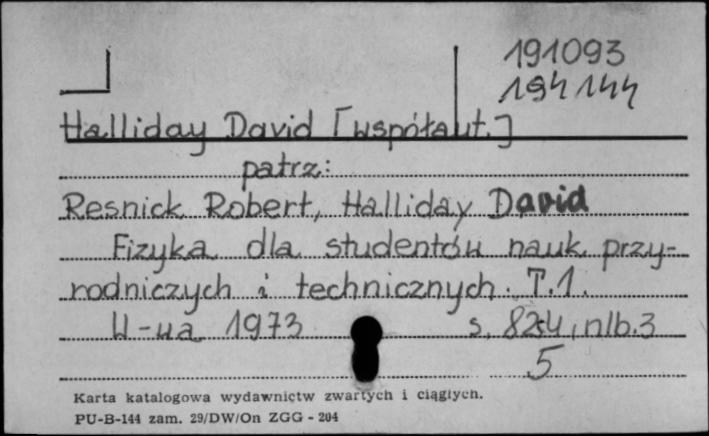 191093
194144
Halliday David [współaut.]
patrz:
Resnick Robert, Halliday David
Fizyka dla studentów nauk przy-
rodniczych i technicznych. T.1.
W-wa 1973 s. , nlb. 3
5
Karta katalogowa wydawnictw zwartych i ciągłych.
PU-B-144 zam. 29/DW/On ZGG - 204